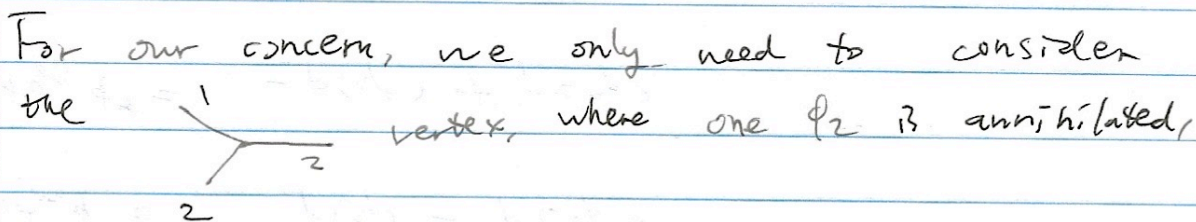 For our concern, we only need to consider
the 1 2 2 vertex, where one φ2 is annihilated,